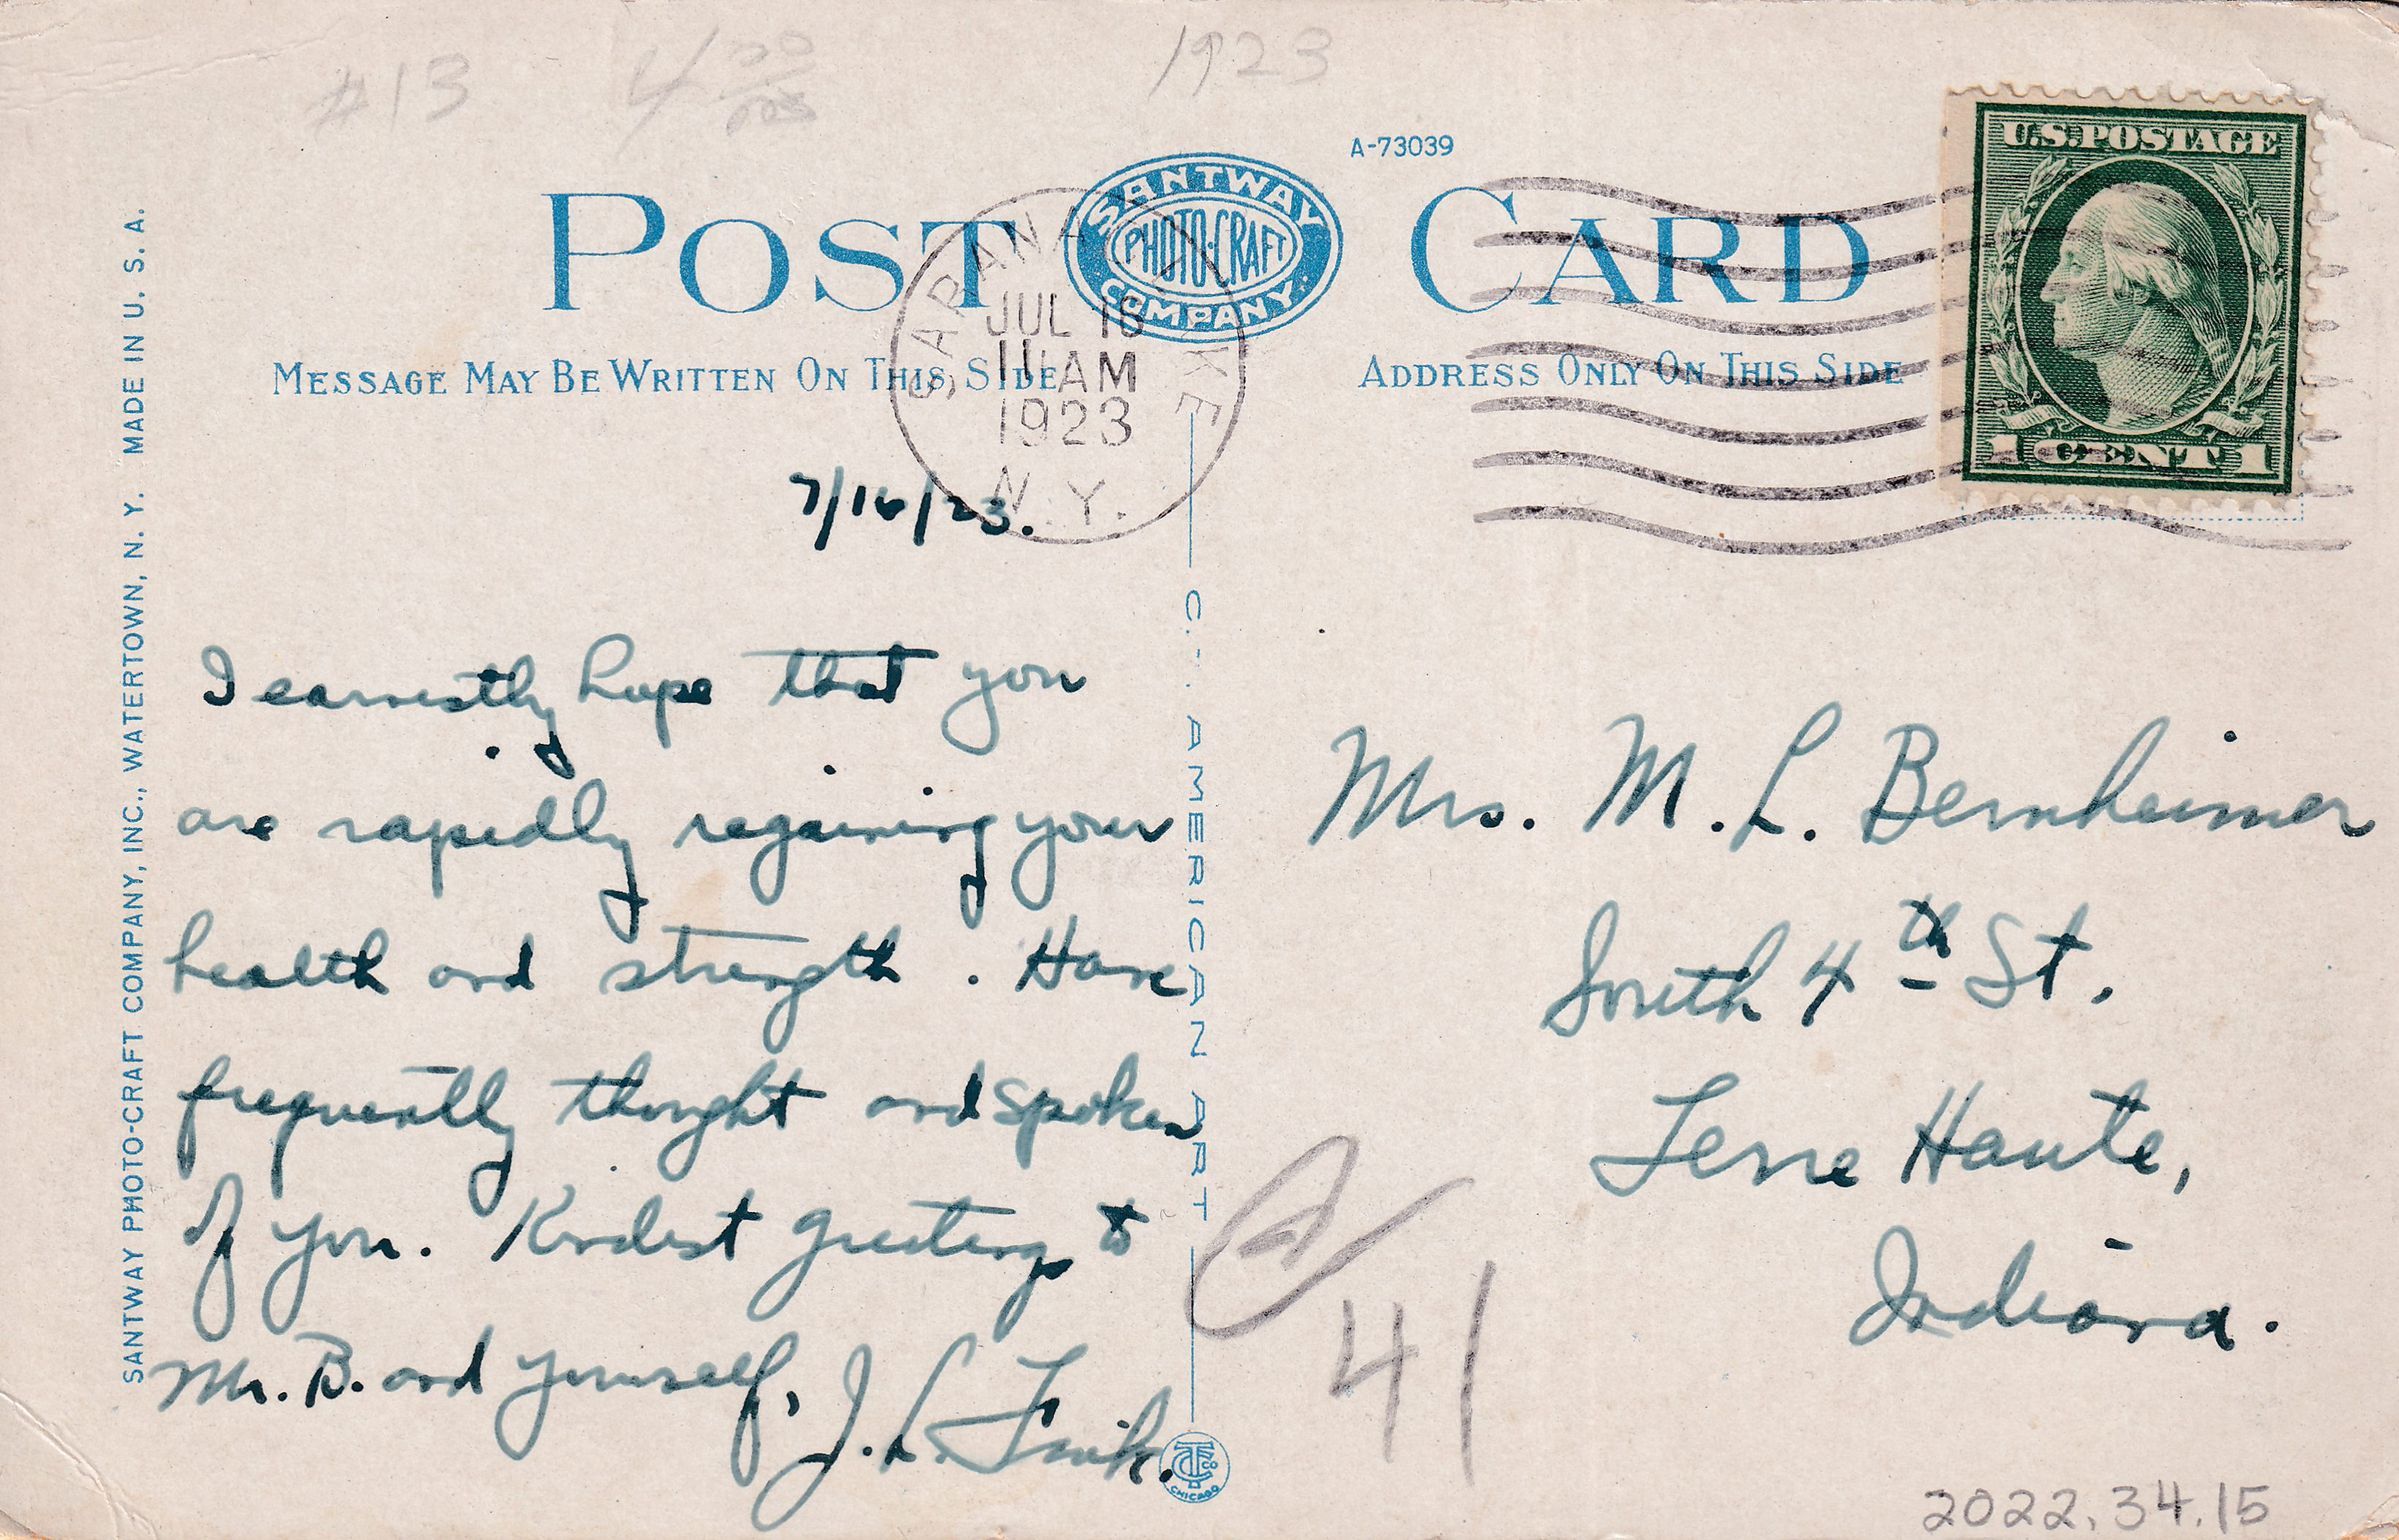 #13
1923
A-73039
POST CARD
SANTWAY
PHOTO-CRAFT
COMPANY
SARANAC LAKE
JUL 16
11 AM
1923
N.Y.
U.S. POSTAGE
1 CENT 1
MESSAGE MAY BE WRITTEN ON THIS SIDE
ADDRESS ONLY ON THIS SIDE
SANTWAY PHOTO-CRAFT COMPANY, INC., WATERTOWN, N. Y. MADE IN U. S. A.
7/16/23.
I earnestly hope that you
are rapidly regaining your
health and strength. Have
frequently thought and spoken
of you. Kindest greetings to
Mr. B. and yourself,
J. L.
C. T. AMERICAN ART
CTCo
CHICAGO
Mrs. M. L. Bernheimer
South 4th St.
Terre Haute,
Indiana.
41
2022.34.15